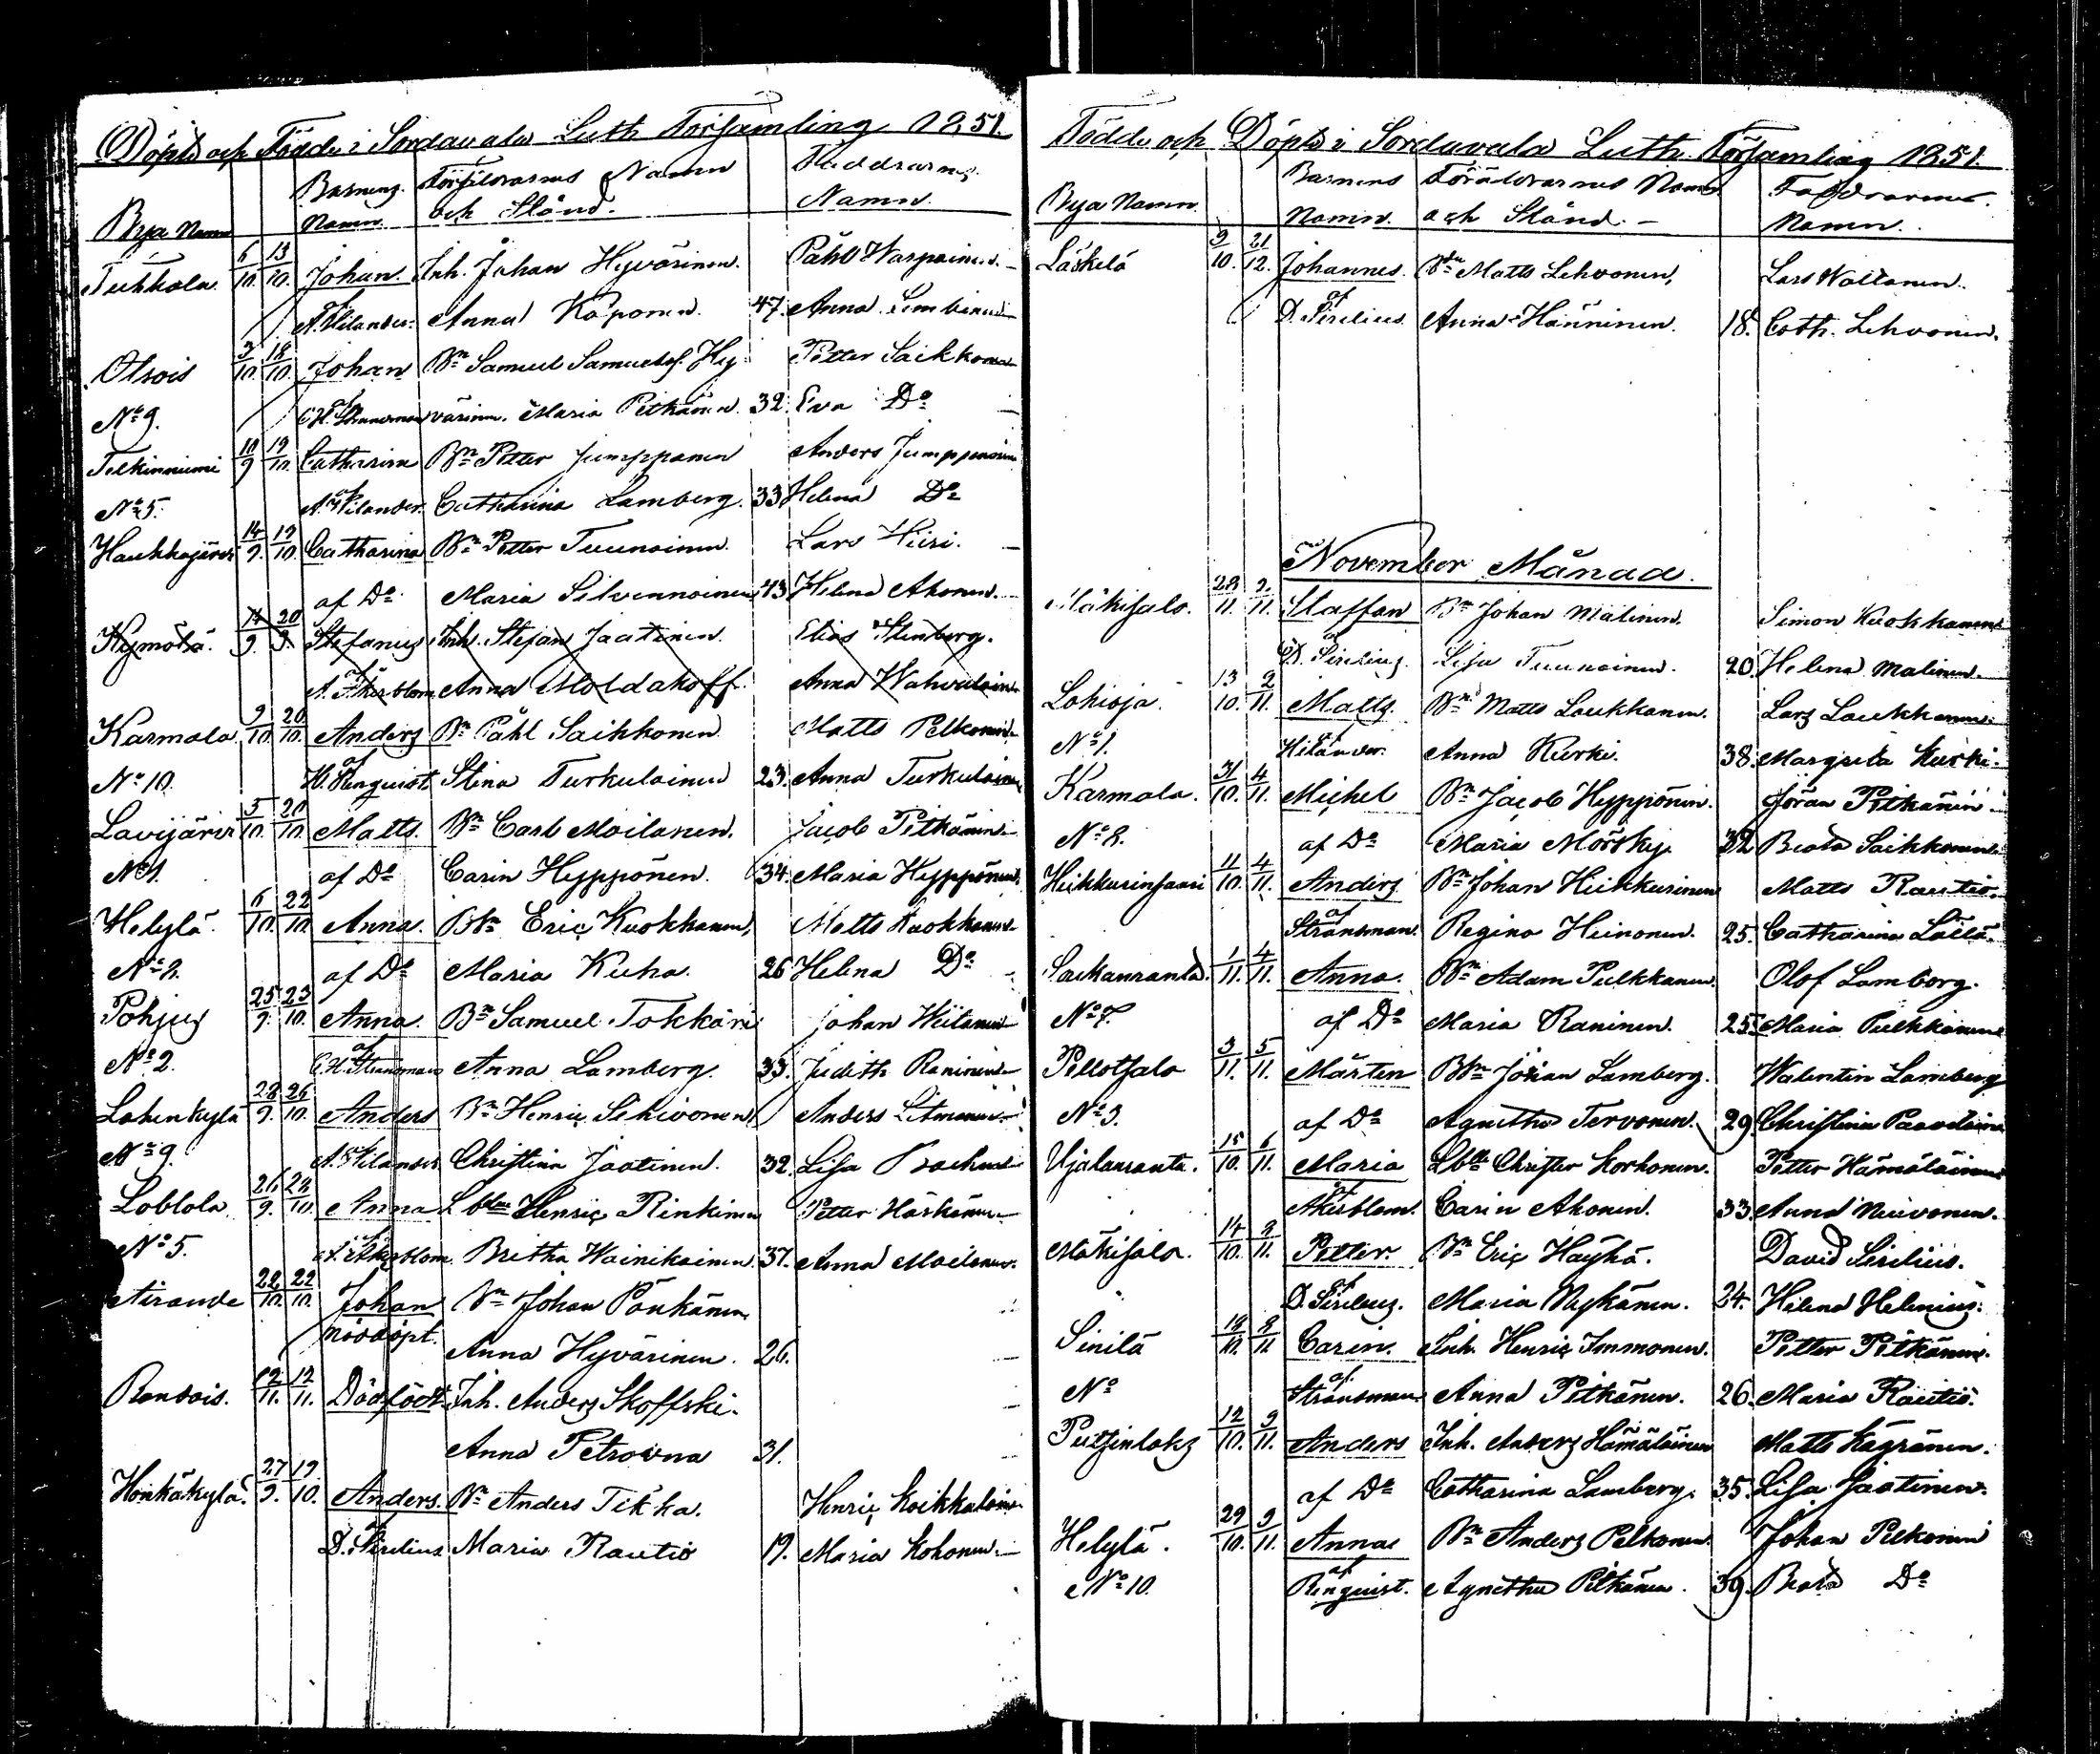 Döpte och Födde i Sordavala Luth Församling 1851.
Bya Namn Barnens Namn Föräldrarnes Namn och Stånd. Faddrarnes Namn.
Tukkola 6/10. 13/10. Johan Inh. Johan Hyvärinen. Påhl
af A. Hilander. Anna Kaponen. 47. Anna
Otsois 3/10. 18/10. Johan Bn Samuel Samuelsf. Hy- Petter Saikkonen
No 9. af C.H. Strandman värinen. Maria Pitkänen. 32. Eva Do
Telkinniemi 10/9 19/10. Catharina Bn Petter Jumpponen Anders Jumpponen
No 5. af A. Hilander. Catharina Lamberg. 33 Helena Do
Haukkajärvi 14/9. 19/10. Catharina Bn Petter Tuunainen. Lars Hiisi.
af Do Maria Silvennoinen 43 Helena Ahonen.
Kymölä. 14/9. 20/9. Stefanus Inh. Stefan Jaatinen. Elias Stenberg.
af A. Åkerblom Anna Moldakoff. Anna
Karmala 9/10. 20/10. Anders Bn Påhl Saikkonen Matts Pelkonen
No 10. af H. Renquist Stina Turkulainen 23. Anna Turkulainen
Lavijärvi 5/10. 20/10. Matts. Bn Carl Moilanen. Jacob Pitkänen
No 1. af Do Carin Hypponen. 34. Maria Hypponen
Helylä 6/10. 22/10. Anna. Bn Eric Kuokkanen, Matts Kuokkanen
No 2. af Do Maria Kuha. 26 Helena Do
Pohjus 25/9. 23/10. Anna. Bn Samuel Tokkari Johan
No 2. af C.H. Strandman Anna Lamberg. 35. Judith Raninen
Lahenkylä 28/9. 26/10. Anders Bn Henric Sihvonen Anders
No 9. af A. Hilander Christina Jaatinen. 32. Lisa
Loblola 26/9. 28/10. Anna Henric Rinkinen Petter Härkönen
No 5. af A. Åkerblom Britha Wainikainen. 37. Anna Moilanen
22/10. 22/10. Johan Bn Johan Pönkänen
nöddöpt. Anna Hyvärinen. 26.
Randois. 12/11. 12/11. Dödfödt Inh. Anders Skoffski.
Anna Petrovna 31.
Honkakylä. 27/9. 19/10. Anders. Bn Anders Tikka. Henric Koikkalainen
af D. Sirelius Maria Rautio 19. Maria Kohonen
Födde och Döpte i Sordavala Luth. Församling 1851.
Bya Namn. Barnens Namn. Föräldrarnes Namn och Stånd. Faddrarnes Namn.
Läskelä 9/10. 21/12. Johannes. Matts Lehvonen, Lars
af D. Sirelius. Anna Hänninen. 18. Cath. Lehvonen.
November Månad.
Mäkisalo. 28/11. 2/11. Staffan Bn Johan Malinen. Simon Kuokkanen
af D. Sirelius. Lisa Tuunainen. 20. Helena Malinen.
Lohioja 13/10. 2/11. Matts. Bn Matts Laukkanen. Lars Laukkanen
No 1. af Hilander. Anna Kurki. 38. Margreta Kurki.
Karmala. 31/10. 4/11. Michel Bn Jacob Hyppönen. Jöran Pitkänen
No 8. af Do Maria Mörsky 32 Beata Saikkonen
Heikkurinsaari 11/10. 4/11. Anders Bn Johan Heikkurinen Matts Rautio.
af Strandman. Regina Heinonen. 25. Catharina
1/11. 4/11. Anna. Bn Adam Pulkkanen Olof Lamberg.
No 7. af Do Maria Raninen. 25. Maria Pulkkanen
Pellotsalo 3/11. 5/11. Mårten Bn Johan Lamberg. Walentin Lamberg
No 3. af Do Agnetha Tervonen. 29. Christina
Ujalanranta. 15/10. 6/11. Maria Christer Korhonen. Petter Hämäläinen
af Åkerblom. Carin Ahonen. 33. Anna
Mäkisalo. 14/10. 8/11. Petter. Bn Eric Häyhä. David Sirelius.
af D. Sirelius. Maria Nykänen. 24. Helena Helenius.
Sinilä 18/10. 8/11 Carin. Inh. Henric Immonen. Petter Pitkänen.
No af Strandman Anna Pitkänen. 26. Maria Rautio.
Putsinlaks 12/10. 9/11. Anders Inh. Anders Hämäläinen Matts
af Do Catharina Lamberg. 35. Lisa Jaatinen.
Helylä. 29/10. 9/11. Anna Bn Anders Pelkonen. Johan Pelkonen
No 10. af Renquist. Agnetha Pitkänen. 39. Beata Do